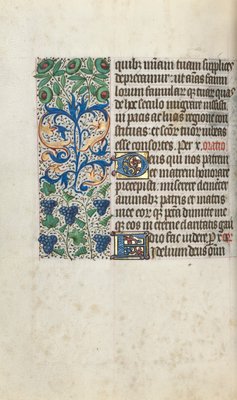 quibz misam tuam supplices
deprecamur: ut aīas famu
lorum famular
de hoc seculo migrare iussisti
in pacis ac lucis regione con
stituas: et scōr tuor iubeas
esse consortes. per x. oratio
Deus qui nos patrem
et matrem honorare
precepisti: miserere clementer
animabz patris et matris
mee eorqz pctā dimitte me
qz eos in eterne claritatis gau
dio fac videre p xp̄
Fidelium deus oīm